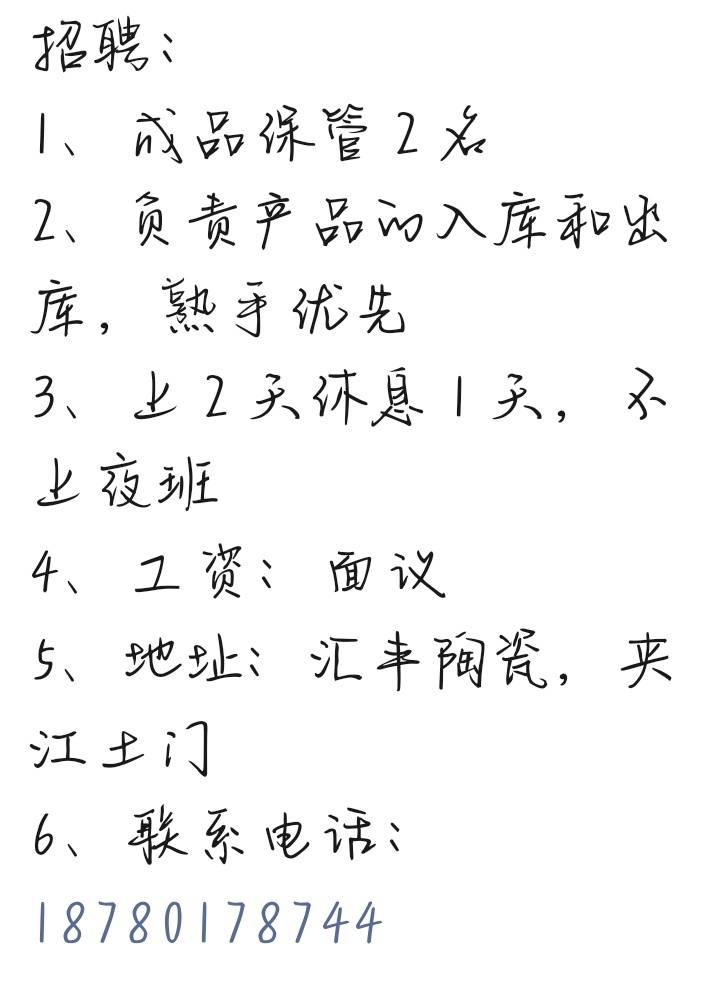 招聘：
1、成品保管2名
2、负责产品的入库和出
库，熟手优先
3、上2天休息1天，不
上夜班
4、工资：面议
5、地址：汇丰陶瓷，夹
江土门
6、联系电话：
18780178744